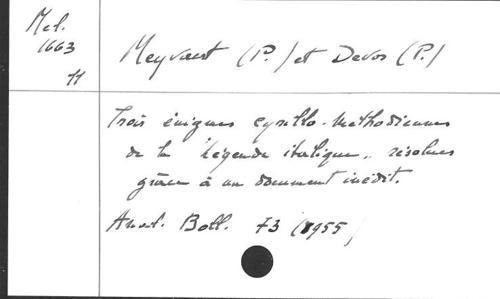 Mel.
1663
11
Meyvaert (P.) et Devos (P.)
Trois énigmes cyrillo-méthodiennes
de la "Légende italique" résolues
grâce à un document inédit.
Anal. Boll. 73 (1955)